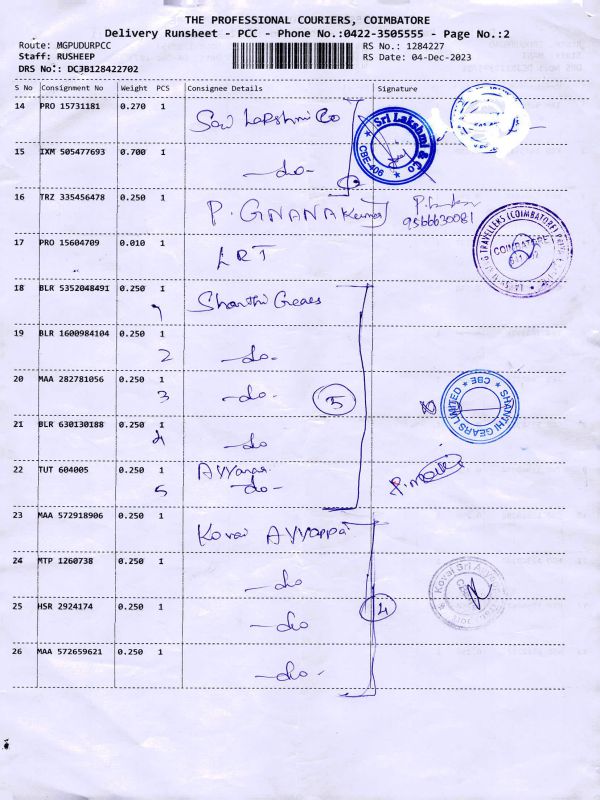 THE PROFESSIONAL COURIERS, COIMBATORE
Delivery Runsheet - PCC - Phone No.:0422-3505555 - Page No.:2
Route: MGPUDURPCC RS No.: 1284227
Staff: RUSHEEP RS Date: 04-Dec-2023
DRS No.: DC3B128422702
S No Consignment No Weight PCS Consignee Details Signature
14 PRO 15731181 0.270 1 Sri Lakshmi Co
Sri Lakshmi & Co
CBE-406
15 IXM 505477693 0.700 1 -do-
16 TRZ 335456478 0.250 1 P. GNANA Kumar
9566630081
17 PRO 15604709 0.010 1 LRT
TRAVELLERS (COIMBATORE)
COIMBATORE
18 BLR 5352048491 0.250 1 Shanthi Gears
1
19 BLR 1600984104 0.250 1 -do-
2
20 MAA 282781056 0.250 1 -do-
3
5
SHANTHI GEARS LIMITED
CBE
21 BLR 630130188 0.250 1 -do
4
22 TUT 604005 0.250 1 Ayyanar
-do-
5
23 MAA 572918906 0.250 1 Kovai Ayyappa
24 MTP 1260738 0.250 1 -do
Kovai Sri
25 HSR 2924174 0.250 1 -do
4
26 MAA 572659621 0.250 1 -do-